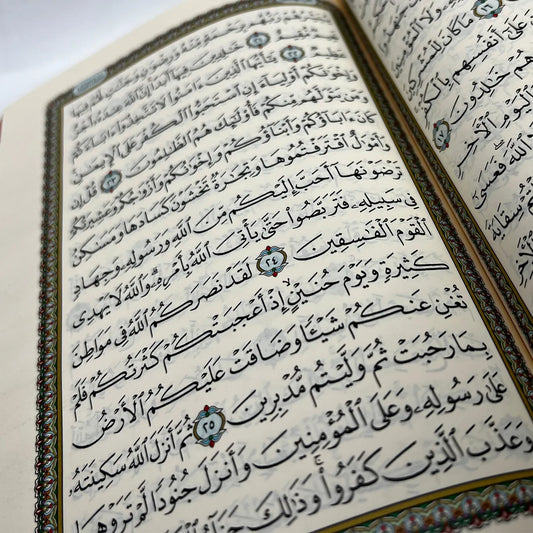 وَلَا ٱلْمُؤْ
١٦ مَا كَانَ لِلْمُشْرِ
عَلَىٰٓ أَنفُسِهِم بِٱلْكُ
هُمْ خَٰلِدُونَ ١٧
ٱلْيَوْمِ ٱلْأٓخِرِ
ٱللَّهَ فَعَسَىٰٓ
سِقَايَةَ
ٱلْأٓخِرِ
يُبَشِّرُهُمْ رَبُّهُم بِرَحْمَةٍ مِّنْهُ وَرِضْوَٰنٍ وَجَنَّٰتٍ لَّهُمْ فِيهَا
نَعِيمٌ مُّقِيمٌ ٢١ خَٰلِدِينَ فِيهَآ أَبَدًا إِنَّ ٱللَّهَ عِندَهُۥٓ أَجْرٌ
عَظِيمٌ ٢٢ يَٰٓأَيُّهَا ٱلَّذِينَ ءَامَنُوا۟ لَا تَتَّخِذُوٓا۟ ءَابَآءَكُمْ
وَإِخْوَٰنَكُمْ أَوْلِيَآءَ إِنِ ٱسْتَحَبُّوا۟ ٱلْكُفْرَ عَلَى ٱلْإِيمَٰنِ
وَمَن يَتَوَلَّهُم مِّنكُمْ فَأُو۟لَٰٓئِكَ هُمُ ٱلظَّٰلِمُونَ ٢٣ قُلْ إِن
كَانَ ءَابَآؤُكُمْ وَأَبْنَآؤُكُمْ وَإِخْوَٰنُكُمْ وَأَزْوَٰجُكُمْ وَعَشِيرَتُكُمْ
وَأَمْوَٰلٌ ٱقْتَرَفْتُمُوهَا وَتِجَٰرَةٌ تَخْشَوْنَ كَسَادَهَا وَمَسَٰكِنُ
تَرْضَوْنَهَآ أَحَبَّ إِلَيْكُم مِّنَ ٱللَّهِ وَرَسُولِهِۦ وَجِهَادٍ
فِى سَبِيلِهِۦ فَتَرَبَّصُوا۟ حَتَّىٰ يَأْتِىَ ٱللَّهُ بِأَمْرِهِۦ وَٱللَّهُ لَا يَهْدِى
ٱلْقَوْمَ ٱلْفَٰسِقِينَ ٢٤ لَقَدْ نَصَرَكُمُ ٱللَّهُ فِى مَوَاطِنَ
كَثِيرَةٍ وَيَوْمَ حُنَيْنٍ إِذْ أَعْجَبَتْكُمْ كَثْرَتُكُمْ فَلَمْ
تُغْنِ عَنكُمْ شَيْـًٔا وَضَاقَتْ عَلَيْكُمُ ٱلْأَرْضُ
بِمَا رَحُبَتْ ثُمَّ وَلَّيْتُم مُّدْبِرِينَ ٢٥ ثُمَّ أَنزَلَ ٱللَّهُ سَكِينَتَهُۥ
عَلَىٰ رَسُولِهِۦ وَعَلَى ٱلْمُؤْمِنِينَ وَأَنزَلَ جُنُودًا لَّمْ تَرَوْهَا
وَعَذَّبَ ٱلَّذِينَ كَفَرُوا۟ وَذَٰلِكَ جَزَآءُ